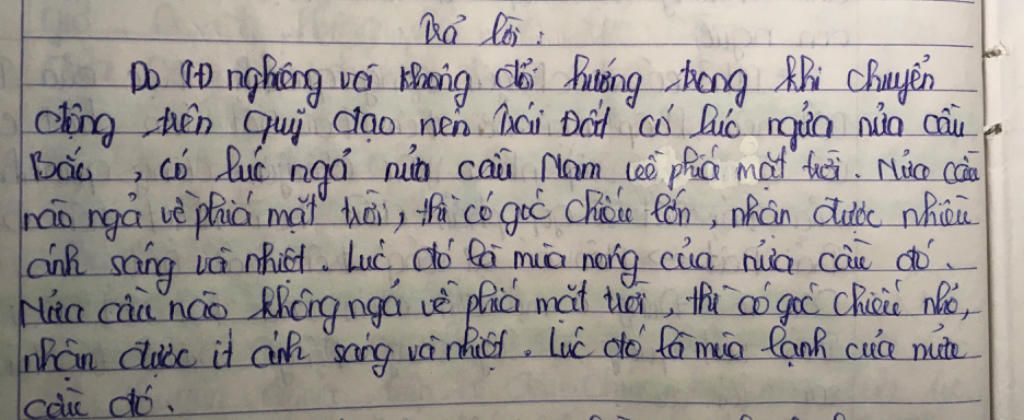 Trả lời:
Do trục nghiêng và không đổi hướng trong khi chuyển
động trên quỹ đạo nên Trái Đất có lúc ngửa nửa cầu
Bắc, có lúc ngả nửa cầu Nam về phía mặt trời. Nửa cầu
nào ngả về phía mặt trời, thì có góc chiếu lớn, nhận được nhiều
ánh sáng và nhiệt. Lúc đó là mùa nóng của nửa cầu đó.
Nửa cầu nào không ngả về phía mặt trời, thì có góc chiếu nhỏ,
nhận được ít ánh sáng và nhiệt. Lúc đó là mùa lạnh của nửa
cầu đó.